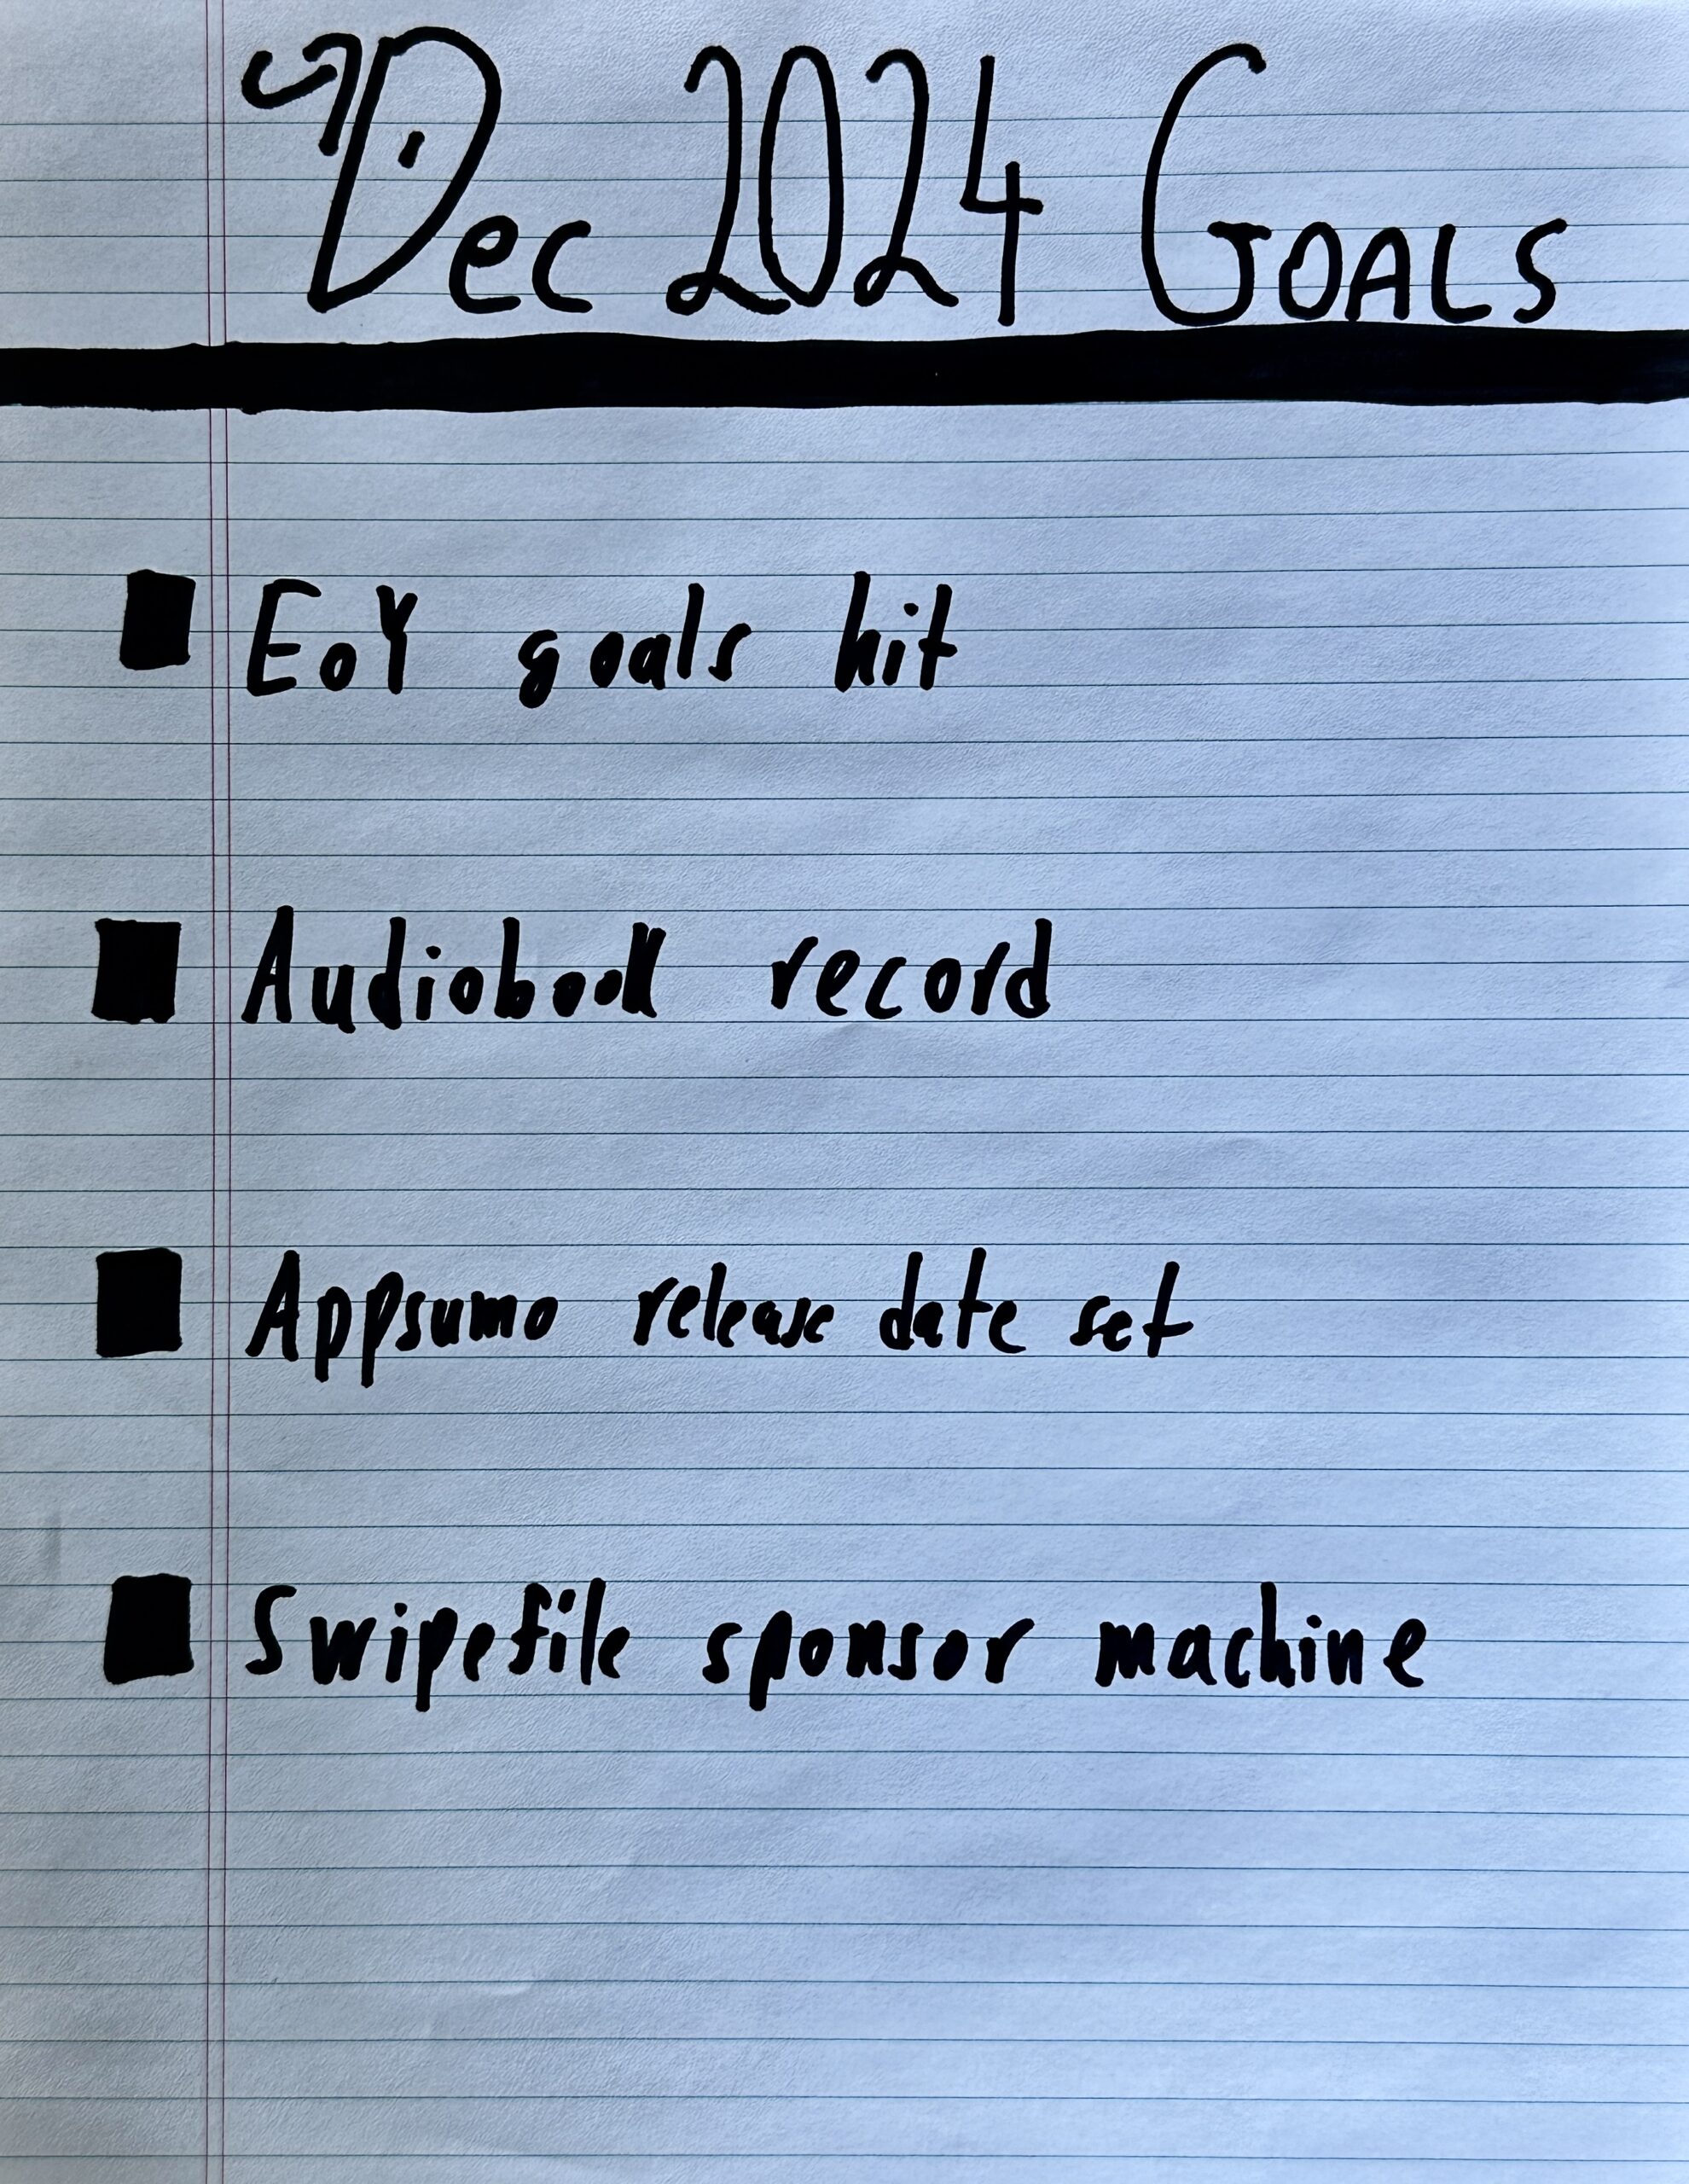 Dec 2024 GOALS
EoY goals hit
Audiobook record
Appsumo release date set
Swipefile sponsor machine